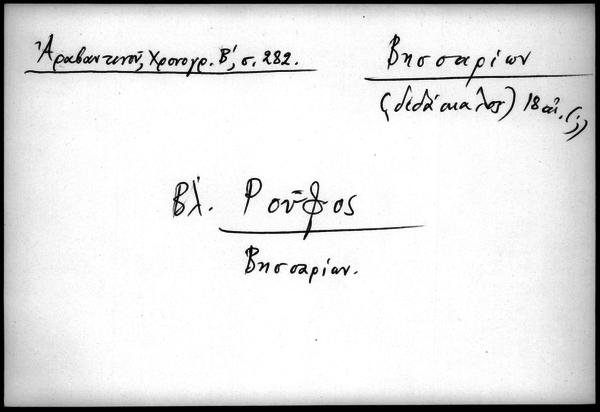 Ἀραβαντινοῦ, Χρονογρ. Β', σ. 282.
Βησσαρίων
(διδάσκαλος) 18 αἰ. (;)
Βλ. Ροῦφος
Βησσαρίων.